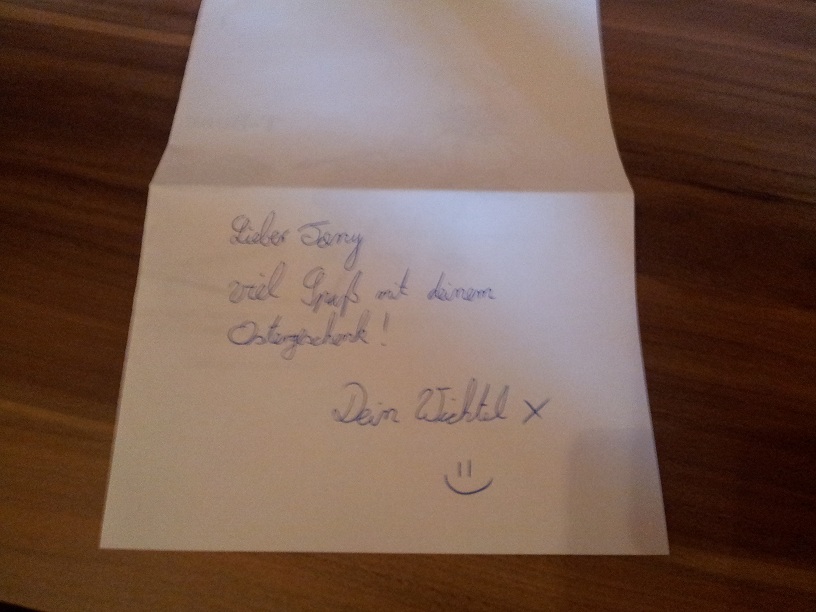 Lieber Tony
viel Spaß mit deinem
Ostergeschenk!
Dein Wichtel X